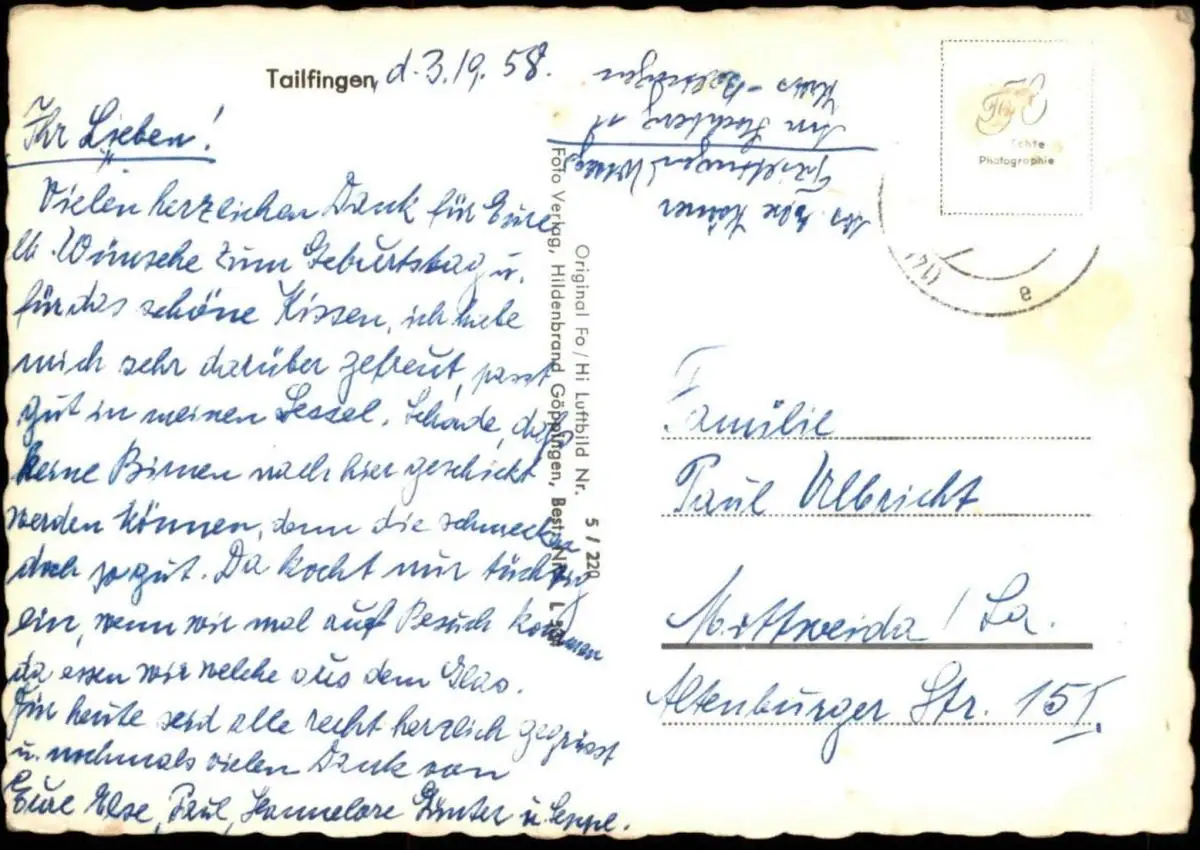 Tailfingen, d. 3./9. 58.
Ihr Lieben!
Vielen herzlichen Dank für Eure
lb. Wünsche zum Geburtstag u.
für das schöne Kissen, ich habe
mich sehr darüber gefreut, passt
gut in meinen Sessel. Schade, daß
keine Birnen nach hier geschickt
werden können, denn die schmecken
doch so gut. Da kocht nur tüchtig
ein, wenn wir mal auf Besuch kommen
da essen wir welche aus dem Glas.
Für heute seid alle recht herzlich gegrüsst
u. nochmals vielen Dank von
Eure Else, Paul, Hannelore Günter u. Seppl.
Abs. Else
Tailfingen
Am
Kreis - Balingen
Foto Verlag, Hildenbrand Göppingen, Best. Nr. L
Original Fo / Hi Luftbild Nr. 5 / 220
Echte
Photographie
(14
a
Familie
Paul Ulbricht
Mittweida / Sa.
Altenburger Str. 15 I.